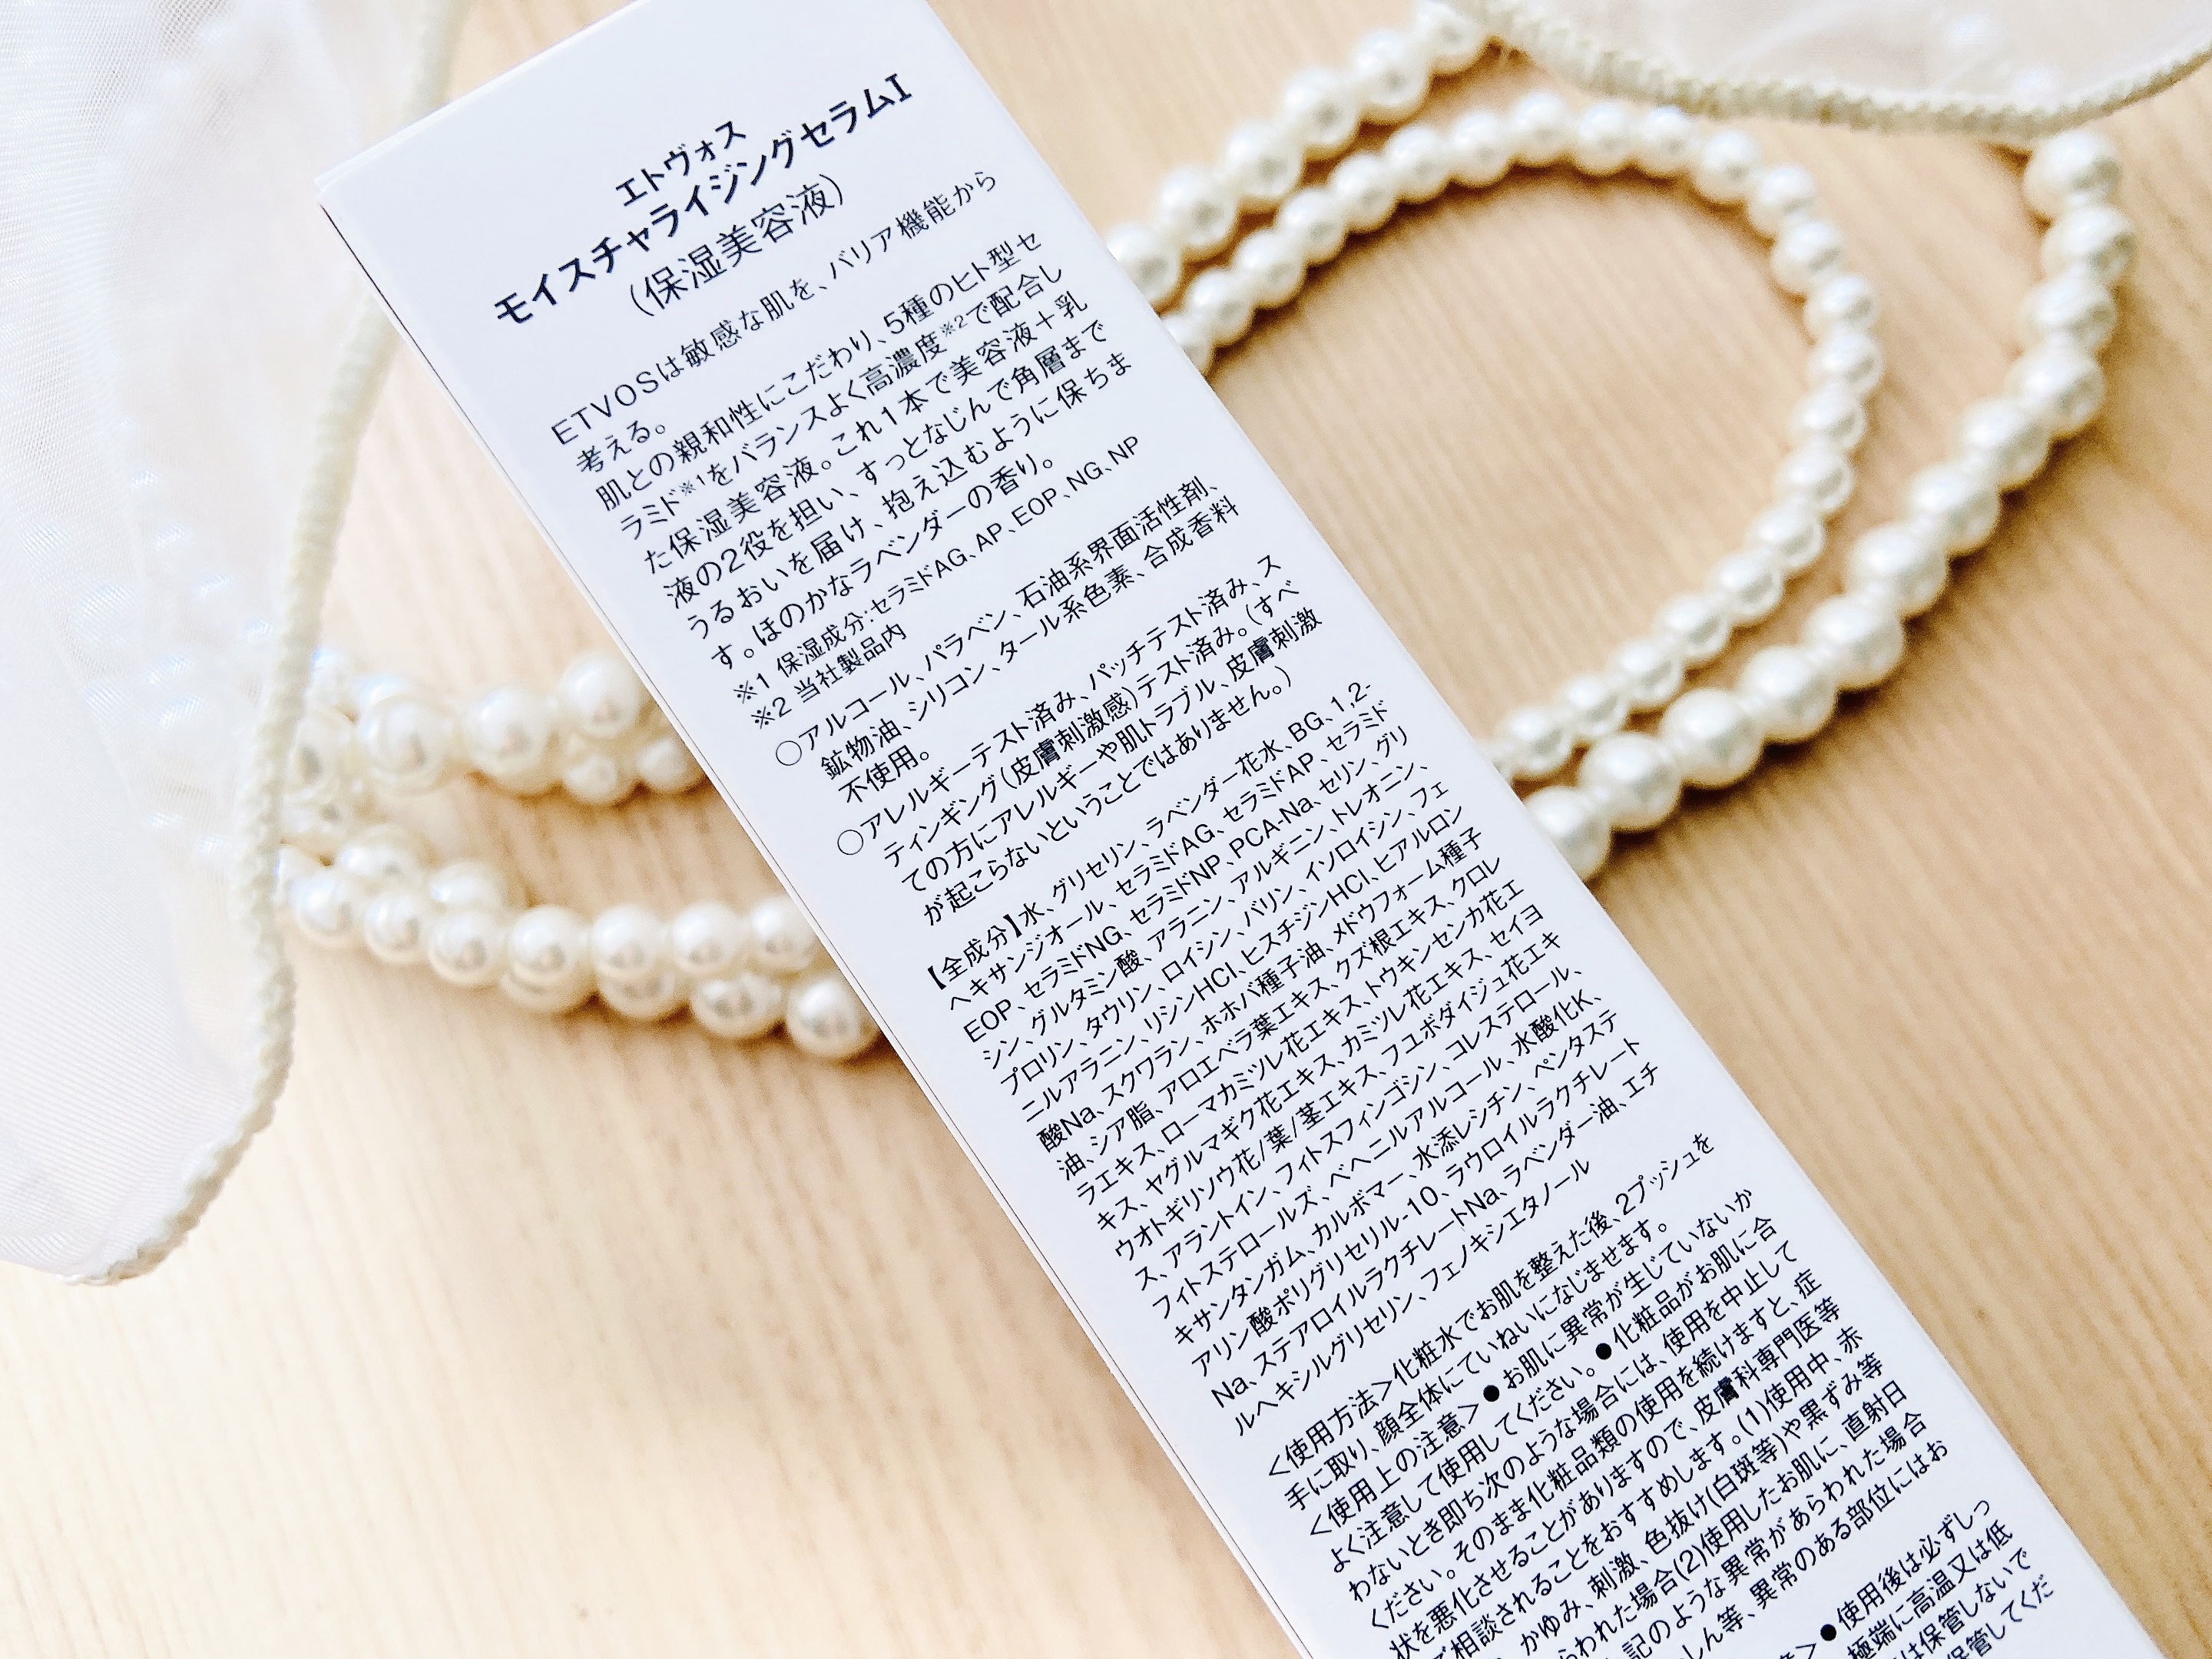 エトヴォス
モイスチャライジングセラムI
(保湿美容液)
ETVOSは敏感な肌を、バリア機能から
考える。
肌との親和性にこだわり、5種のヒト型セ
ラミド※1をバランスよく高濃度※2で配合し
た保湿美容液。これ1本で美容液＋乳
液の2役を担い、すっとなじんで角層まで
うるおいを届け、抱え込むように保ちま
す。ほのかなラベンダーの香り。
※1 保湿成分:セラミドAG、AP、EOP、NG、NP
※2 当社製品内
○アルコール、パラベン、石油系界面活性剤、
鉱物油、シリコン、タール系色素、合成香料
不使用。
○アレルギーテスト済み、パッチテスト済み、ス
ティンギング(皮膚刺激感)テスト済み。(すべ
ての方にアレルギーや肌トラブル、皮膚刺激
が起こらないということではありません。)
【全成分】水、グリセリン、ラベンダー花水、BG、1,2-
ヘキサンジオール、セラミドAG、セラミドAP、セラミド
EOP、セラミドNG、セラミドNP、PCA-Na、セリン、グリ
シン、グルタミン酸、アラニン、アルギニン、トレオニン、
プロリン、タウリン、ロイシン、バリン、イソロイシン、フェ
ニルアラニン、リシンHCl、ヒスチジンHCl、ヒアルロン
酸Na、スクワラン、ホホバ種子油、メドウフォーム種子
油、シア脂、アロエベラ葉エキス、クズ根エキス、クロレ
ラエキス、ローマカミツレ花エキス、トウキンセンカ花エ
キス、ヤグルマギク花エキス、カミツレ花エキス、セイヨ
ウオトギリソウ花/葉/茎エキス、フユボダイジュ花エキ
ス、アラントイン、フィトスフィンゴシン、コレステロール、
フィトステロールズ、ベヘニルアルコール、水酸化K、
キサンタンガム、カルボマー、水添レシチン、ペンタステ
アリン酸ポリグリセリル-10、ラウロイルラクチレート
Na、ステアロイルラクチレートNa、ラベンダー油、エチ
ルヘキシルグリセリン、フェノキシエタノール
＜使用方法＞化粧水でお肌を整えた後、2プッシュを
手に取り、顔全体にていねいになじませます。
＜使用上の注意＞●お肌に異常が生じていないか
よく注意して使用してください。●化粧品がお肌に合
わないとき即ち次のような場合には、使用を中止して
ください。そのまま化粧品類の使用を続けますと、症
状を悪化させることがありますので、皮膚科専門医等
ご相談されることをおすすめします。(1)使用中、赤
かゆみ、刺激、色抜け(白斑等)や黒ずみ等
われた場合(2)使用したお肌に、直射日
記のような異常があらわれた場合
しん等、異常のある部位にはお
＞●使用後は必ずしっ
極端に高温又は低
は保管しないで
保管してくだ